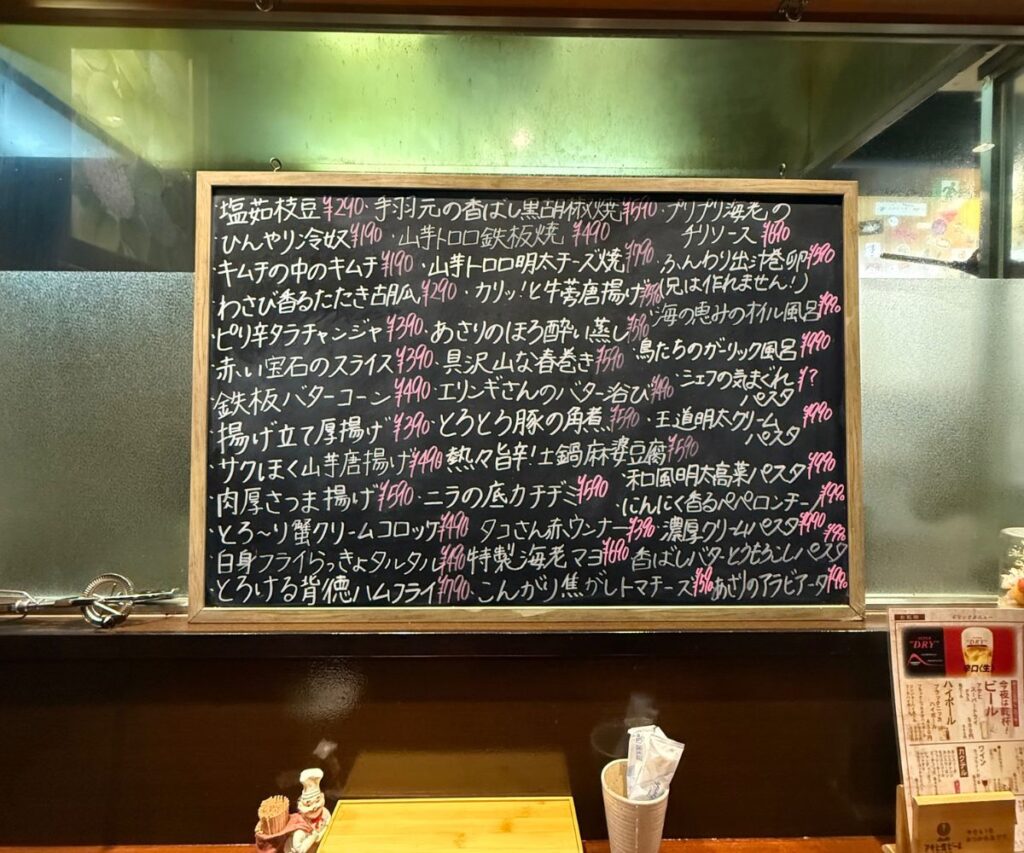 ・塩茹枝豆¥290
・ひんやり冷奴¥190
・キムチの中のキムチ¥190
・わさび香るたたき胡瓜¥290
・ピリ辛タラチャンジャ¥390
・赤い宝石のスライス¥390
・鉄板バターコーン¥490
・揚げ立て厚揚げ¥390
・サクほく山芋唐揚げ¥490
・肉厚さつま揚げ¥590
・とろ〜り蟹クリームコロッケ¥490
・白身フライらっきょタルタル¥490
・とろける背徳ハムフライ¥790
・手羽元の香ばし黒胡椒焼¥590
・山芋トロロ鉄板焼¥490
・山芋トロロ明太チーズ焼¥790
・カリッ!と牛蒡唐揚げ¥390
・あさりのほろ酔い蒸し¥590
・具沢山な春巻き¥590
・エリンギさんのバター浴び¥490
・とろとろ豚の角煮¥590
・熱々旨辛!土鍋麻婆豆腐¥590
・ニラの底力チヂミ¥590
・タコさん赤ウンナー¥390
・特製海老マヨ¥690
・こんがり焦がしトマチーズ¥590
・プリプリ海老の
チリソース¥690
・ふんわり出汁巻卵¥590
(兄は作れません!)
・海の恵みのオイル風呂¥990
・鳥たちのガーリック風呂¥990
・シェフの気まぐれ¥?
パスタ
・王道明太クリーム¥990
パスタ
・和風明太高菜パスタ¥990
・にんにく香るペペロンチーノ¥990
・濃厚クリームパスタ¥990
・香ばしバターとうもろこしパスタ¥990
・あさりのアラビアータ¥990
"DRY"
辛口〈生〉
今夜は乾杯!
ビール
ハイボール
ワイン
カクテル